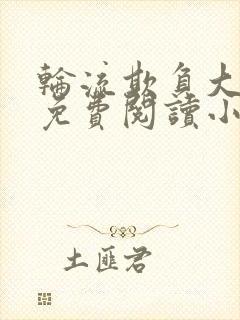 輪流欺負大
免費閱讀小
土匪君